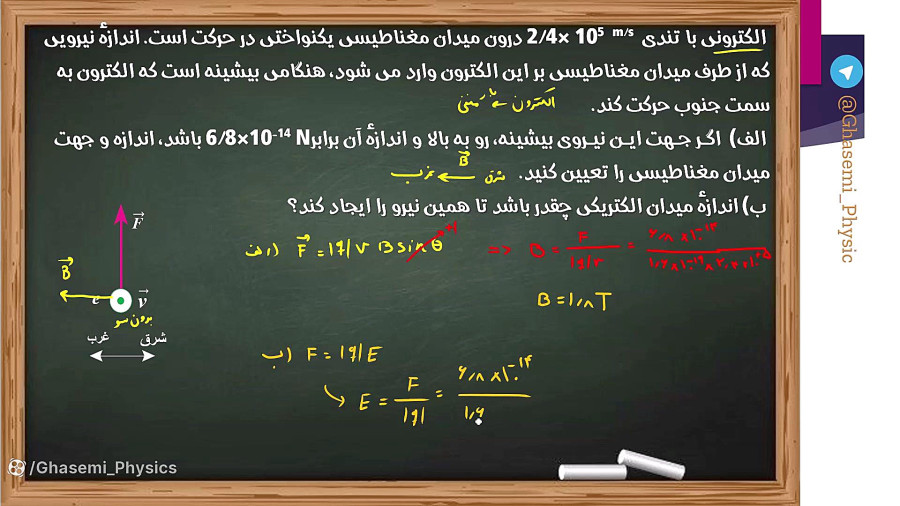 الکترونی با تندی 2/4× 10⁵ m/s درون میدان مغناطیسی یکنواختی در حرکت است. اندازهٔ نیرویی
که از طرف میدان مغناطیسی بر این الکترون وارد می شود، هنگامی بیشینه است که الکترون به
سمت جنوب حرکت کند.
الکترون ← بار منفی
الف) اگر جهت این نیروی بیشینه، رو به بالا و اندازهٔ آن برابر 6/8×10⁻¹⁴ N باشد، اندازه و جهت
میدان مغناطیسی را تعیین کنید.
شرق ← غرب
B
ب) اندازهٔ میدان الکتریکی چقدر باشد تا همین نیرو را ایجاد کند؟
F
B
e
v
برون سو
غرب
شرق
الف) F = |q| v B sin θ
=> B = F / |q|v = ۶٫۸ × ۱۰⁻¹⁴ / ۱٫۶ × ۱۰⁻¹⁹ × ۲٫۴ × ۱۰⁵
B = ۱٫۸ T
ب) F = |q| E
E = F / |q| = ۶٫۸ × ۱۰⁻¹⁴ / ۱٫۶
/Ghasemi_Physics
@Ghasemi_Physic